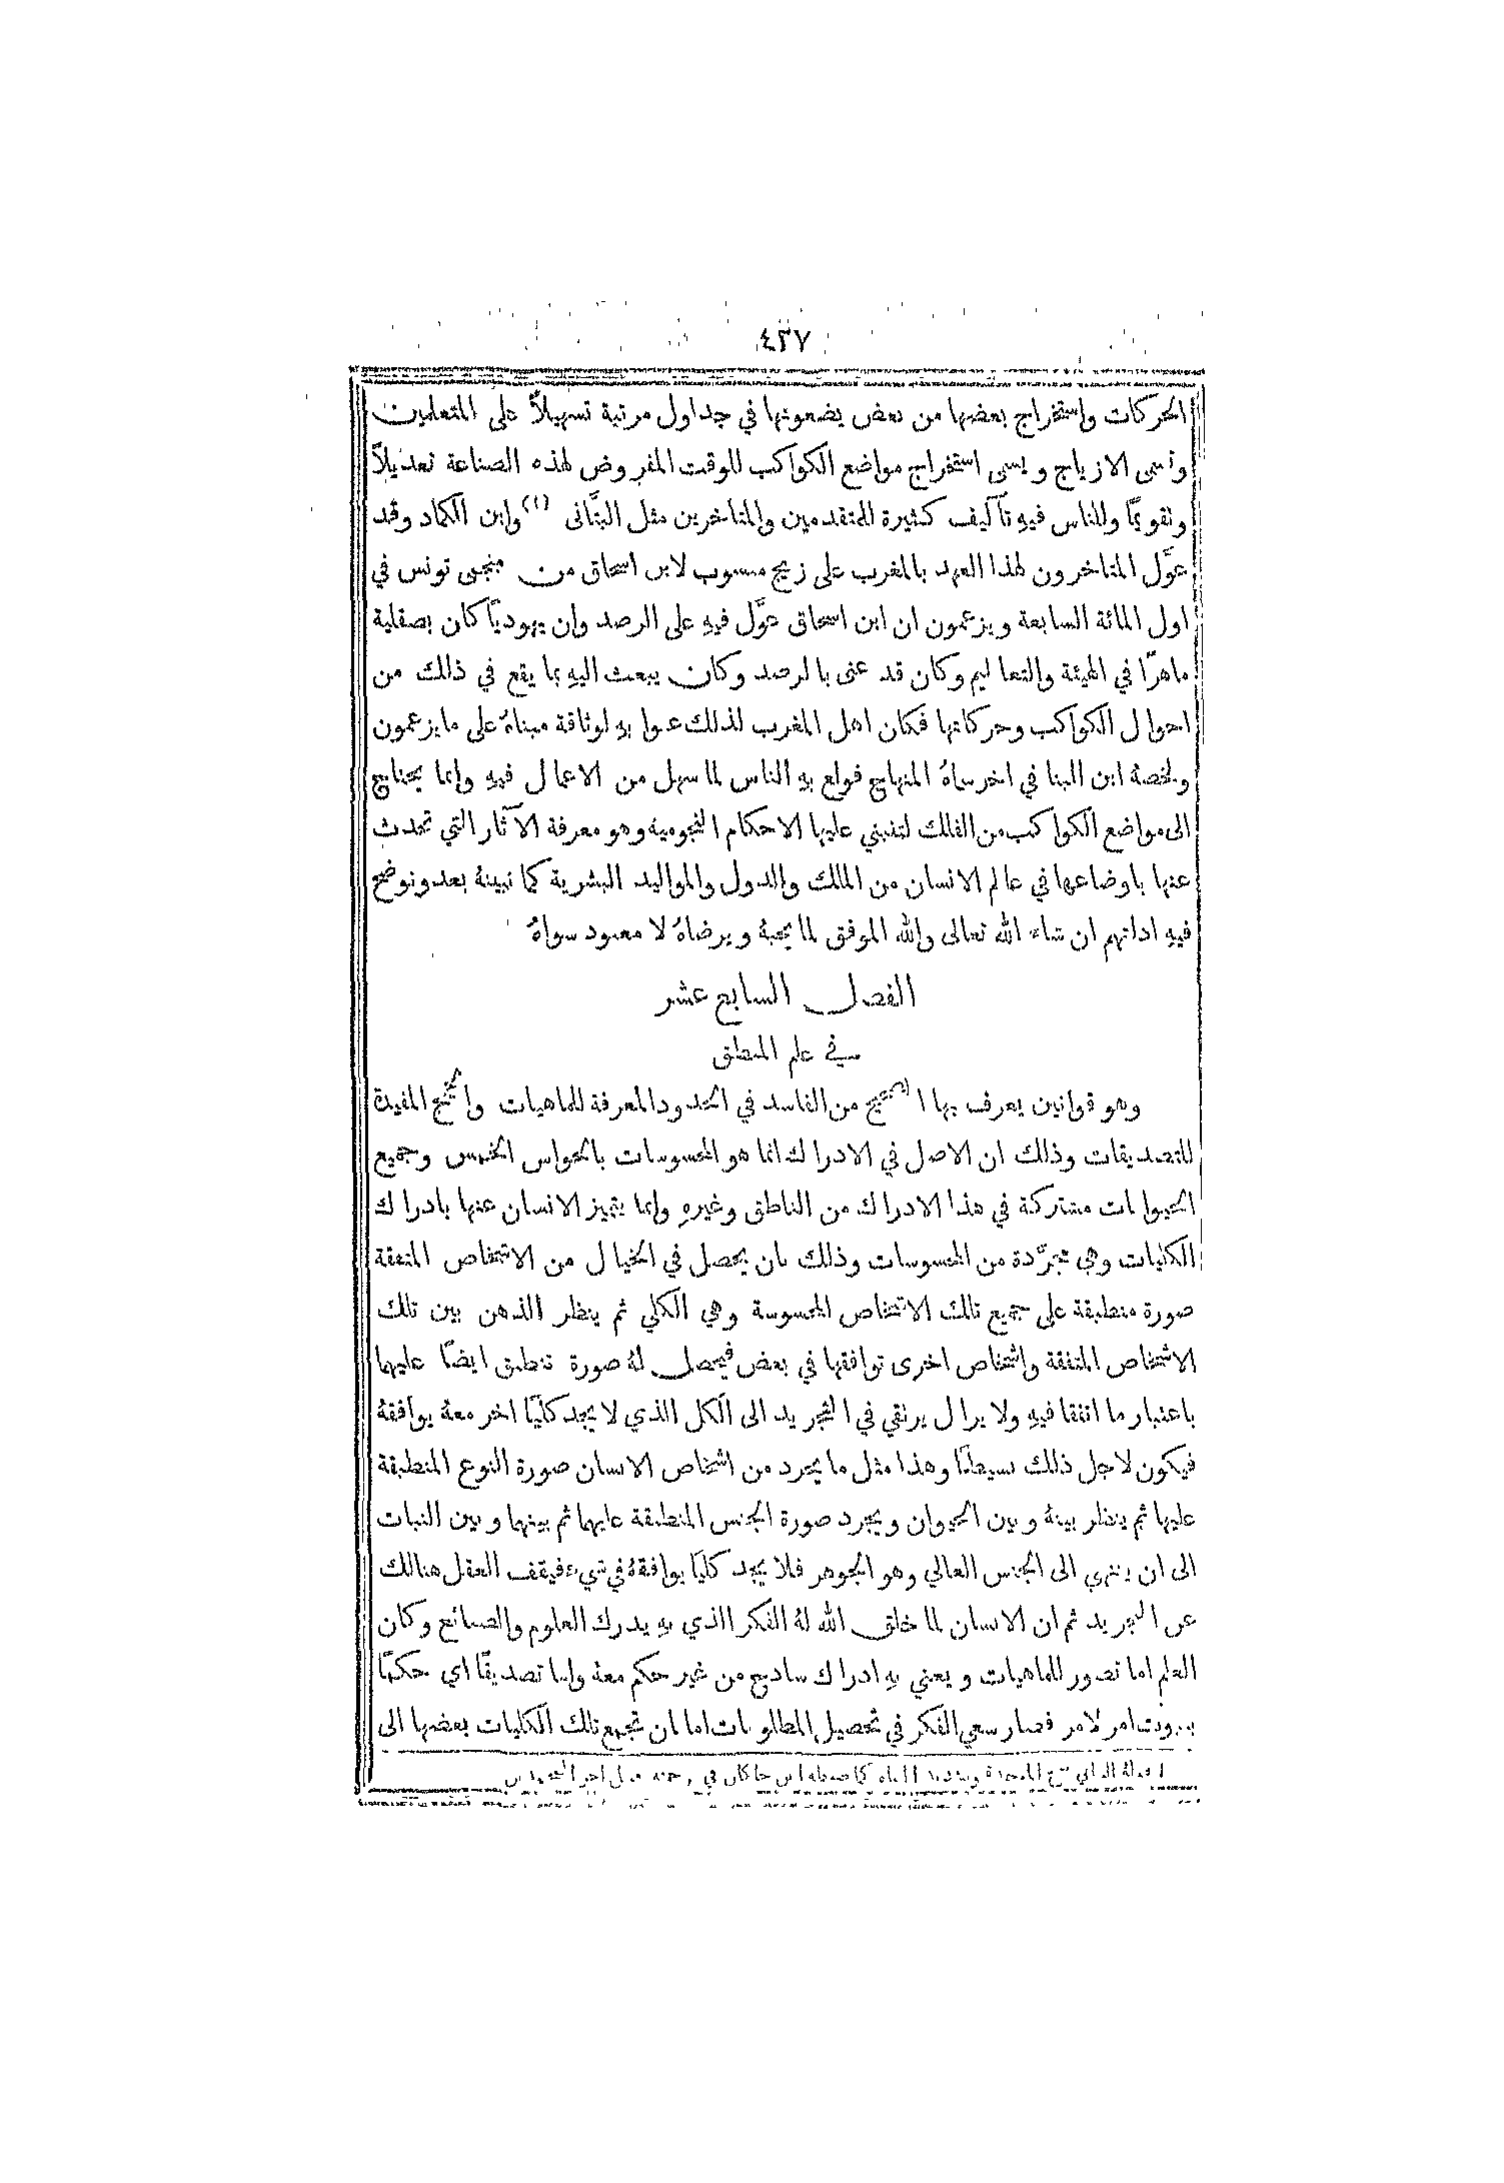 ٤٣٧
الحركات واستخراج بعضها من بعض يضعونها في جداول مرتبة تسهيلاً على المتعلمين
وتسمى الازياج ويسمى استخراج مواضع الكواكب للوقت المفروض لهذه الصناعة تعديلاً
وتقويمًا وللناس فيهِ تآليف كثيرة للمتقدمين والمتاخرين مثل البتَّانى (١) وابن الكماد وقد
عوَّل المتاخرون لهذا العهد بالمغرب على زيج منسوب لابن اسحاق من منجمى تونس في
اول المائة السابعة ويزعمون ان ابن اسحاق عوَّل فيهِ على الرصد وان يهوديًا كان بصقلية
ماهرًا في الهيئة والتعاليم وكان قد عنى بالرصد وكان يبعث اليهِ بما يقع في ذلك من
احوال الكواكب وحركاتها فكان اهل المغرب لذلك عنوا بهِ لوثاقة مبناهُ على ما يزعمون
ولخصهُ ابن البنا في اخر سماهُ المنهاج فولع بهِ الناس لما سهل من الاعمال فيهِ وإنما يحتاج
الى مواضع الكواكب من الفلك لتنبني عليها الاحكام النجومية وهو معرفة الآثار التي تحدث
عنها باوضاعها في عالم الانسان من الملك والدول والمواليد البشرية كما نبينهُ بعد ونوضح
فيهِ ادلتهم ان شاء الله تعالى والله الموفق لما يحبهُ ويرضاهُ لا معبود سواهُ
الفصل السابع عشر
في علم المنطق
وهو قوانين يعرف بها الصحيح من الفاسد في الحدود المعرفة للماهيات والحجج المفيدة
للتصديقات وذلك ان الاصل في الادراك انما هو المحسوسات بالحواس الخمس وجميع
الحيوانات مشتركة في هذا الادراك من الناطق وغيرهِ وإنما يتميز الانسان عنها بادراك
الكليات وهي مجرَّدة من المحسوسات وذلك بان يحصل في الخيال من الاشخاص المتفقة
صورة منطبقة على جميع تلك الاشخاص المحسوسة وهي الكلي ثم ينظر الذهن بين تلك
الاشخاص المتفقة واشخاص اخرى توافقها في بعض فيحصل لهُ صورة تنطبق ايضًا عليها
باعتبار ما اتفقا فيهِ ولا يزال يرتقي في التجريد الى الكل الذي لا يجد كليًا اخر معهُ يوافقهُ
فيكون لاجل ذلك بسيطًا وهذا مثل ما يجرد من اشخاص الانسان صورة النوع المنطبقة
عليها ثم ينظر بينهُ وبين الحيوان ويجرد صورة الجنس المنطبقة عليهما ثم بينهما وبين النبات
الى ان ينتهي الى الجنس العالي وهو الجوهر فلا يجد كليًا يوافقهُ في شيء فيقف العقل هنالك
عن التجريد ثم ان الانسان لما خلق الله لهُ الفكر الذي بهِ يدرك العلوم والصنائع وكان
العلم اما تصور للماهيات ويعني بهِ ادراك ساذج من غير حكم معهُ واما تصديقًا اي حكمًا
بثبوت امر لامر فصار سعي الفكر في تحصيل المطلوبات اما ان تجمع تلك الكليات بعضها الى